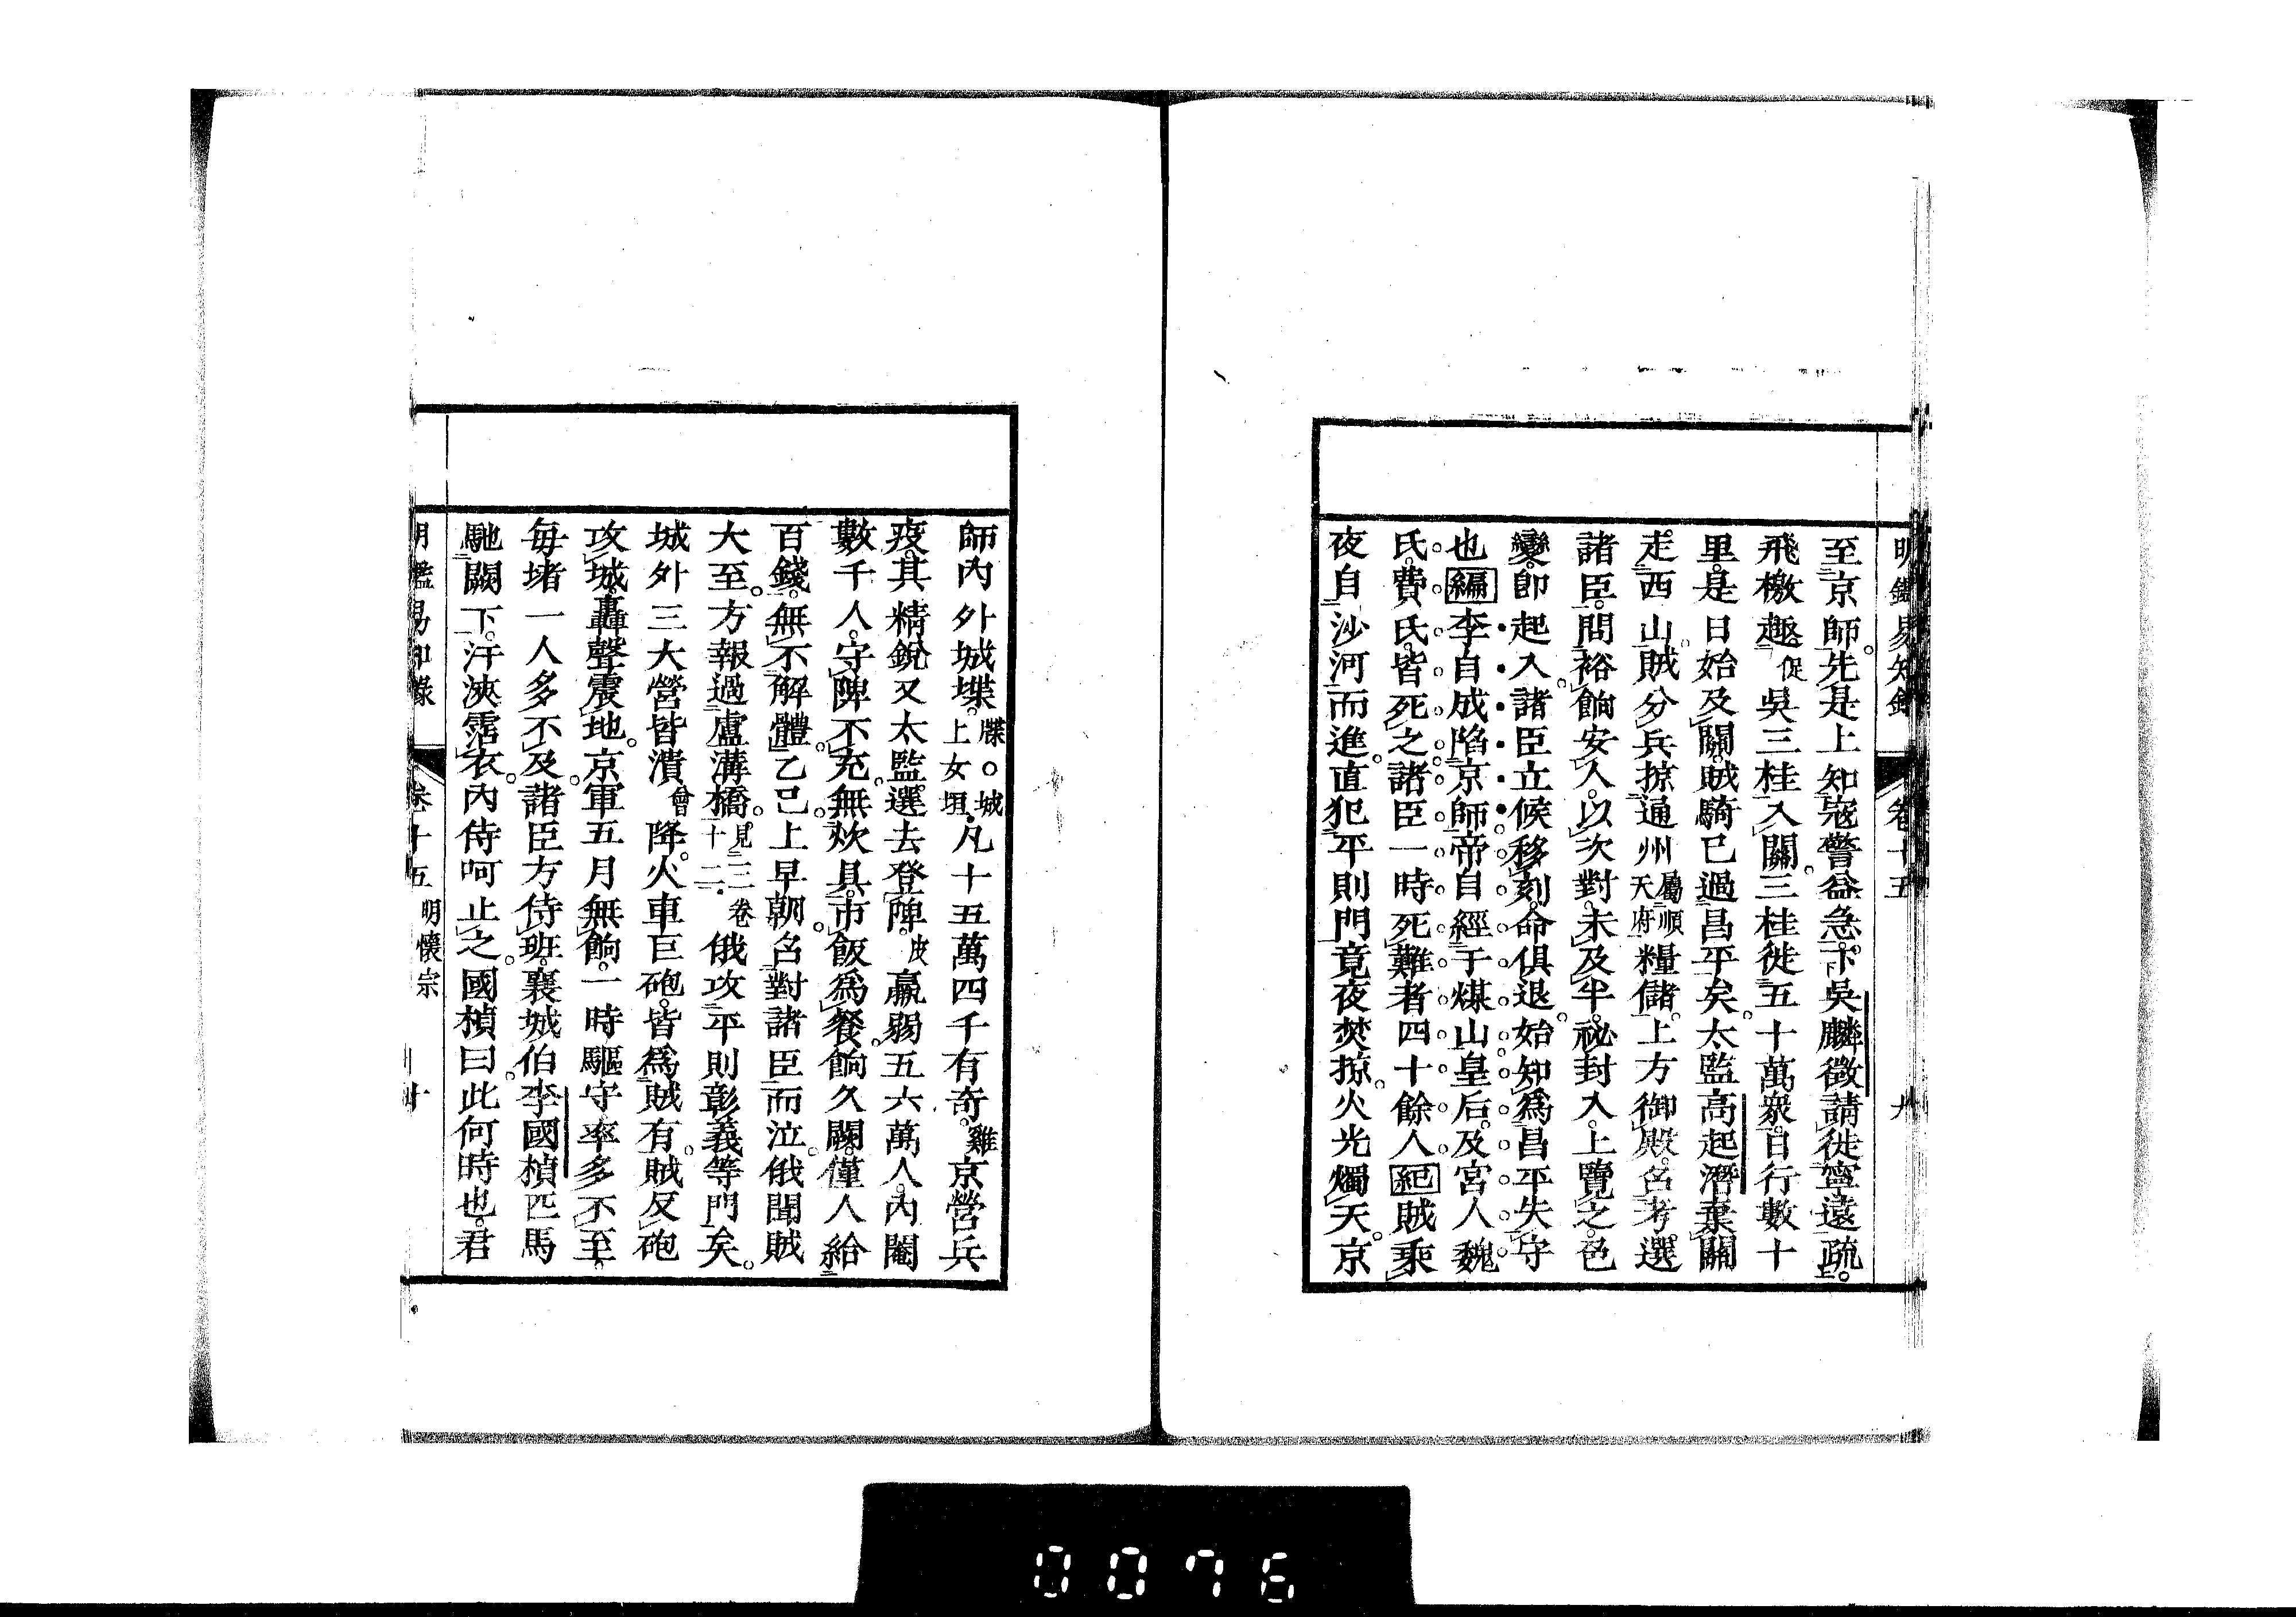 明鑑易知錄 卷十五 九
至京師。先是上知寇警益急。下吳麟徵請徙寧遠疏。
飛檄趣促吳三桂入關。三桂徙五十萬衆。日行數十
里。是日始及關。賊騎已過昌平矣。太監高起潛棄關
走西山。賊分兵掠通州屬順天府糧儲。上方御殿。召考選
諸臣。問裕餉安人。以次對。未及半。祕封入。上覽之。色
變。卽起入。諸臣立候移刻。命俱退。始知爲昌平失守
也編李自成陷京師。帝自經于煤山。皇后。及宮人魏
氏。費氏。皆死之。諸臣一時死難者四十餘人紀賊乘
夜自沙河而進。直犯平則門。竟夜焚掠。火光燭天。京
師內外城堞。牒〇城上女垣凡十五萬四千有奇。雞京營兵
疫。其精銳又太監選去。登陴。皮羸弱五六萬人。內閹
數千人。守陴不充。無炊具。市飯爲餐。餉久闕。僅人給
百錢。無不解體。乙巳上早朝。召對諸臣而泣。俄聞賊
大至。方報過盧溝橋。見三卷十二俄攻平則彰義等門矣。
城外三大營皆潰會降。火車巨砲。皆爲賊有。賊反砲
攻城。轟聲震地。京軍五月無餉。一時驅守率多不至。
每堵一人多不及。諸臣方侍班。襄城伯李國楨匹馬
馳闕下。汗浹霑衣。內侍呵止之國楨曰此何時也。君
明鑑易知錄 卷十五 明懷宗 十
0076